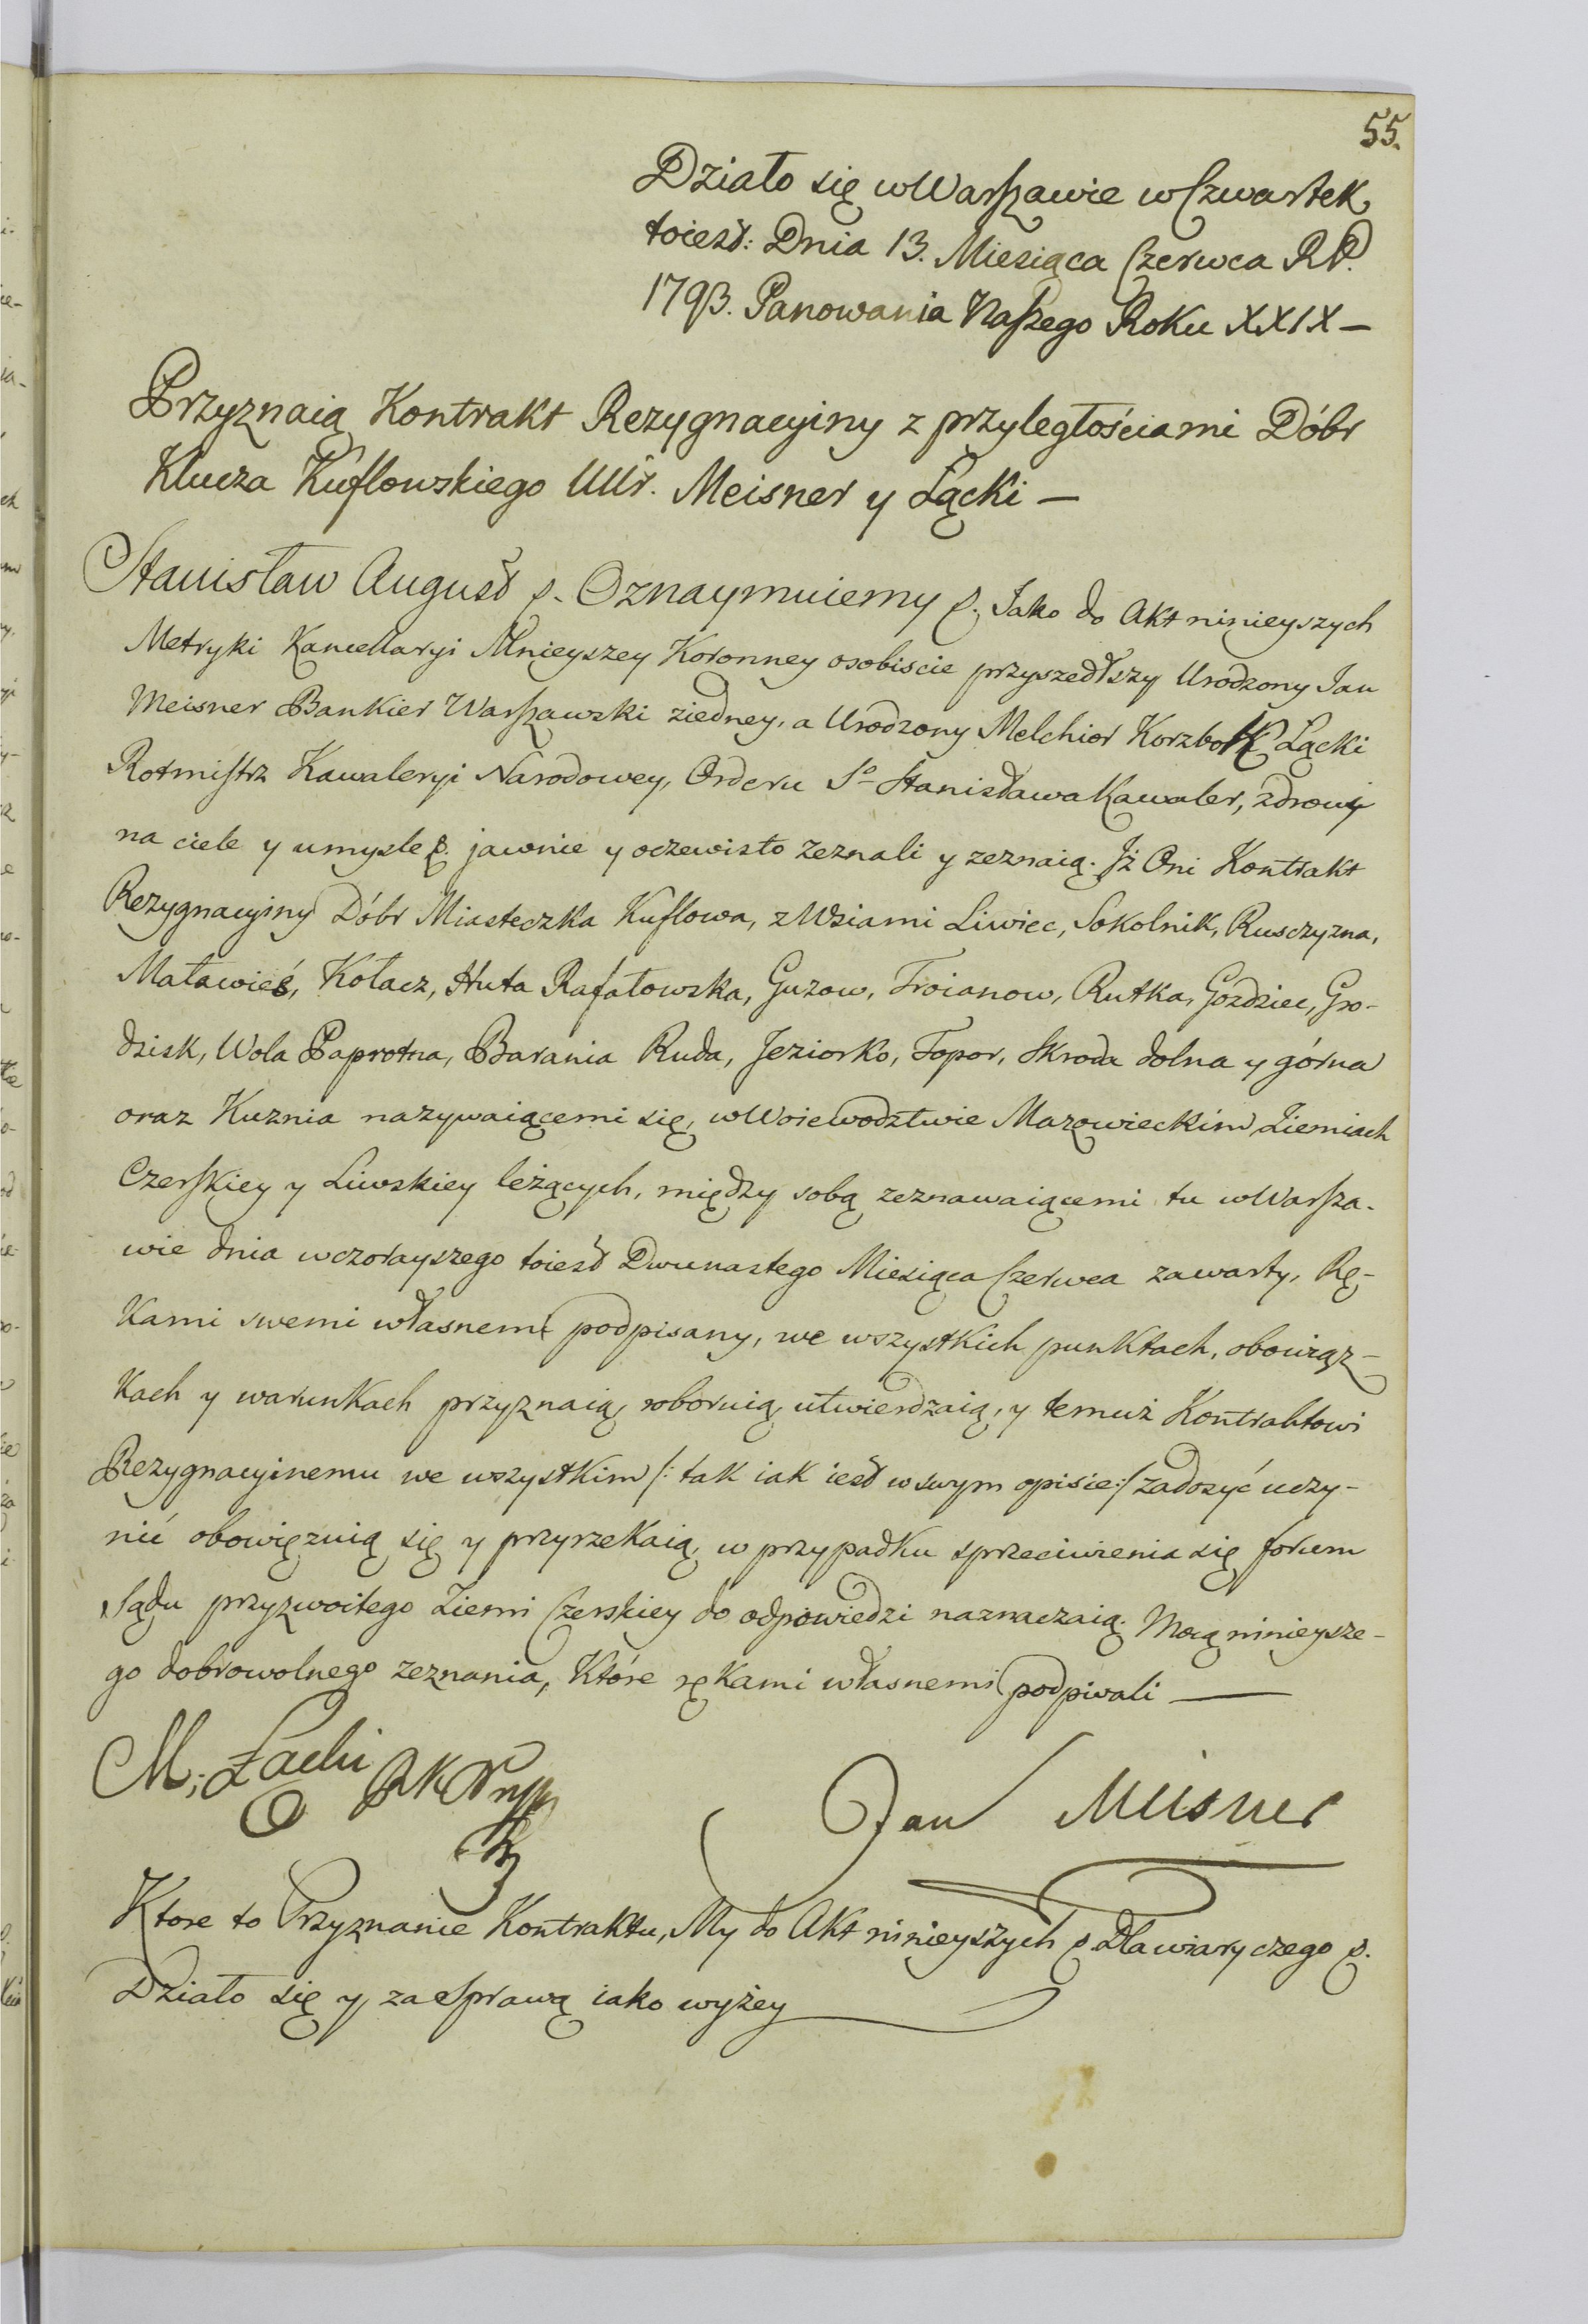 55.
Działo się w Warszawie w Czwartek
toiest: Dnia 13. Miesiąca Czerwca R.P.
1793. Panowania Naszego Roku XXIX –
Przyznaią Kontrakt Rezygnacyiny z przyległościami Dóbr
Klucza Kuflowskiego UUr. Meisner y Łącki –
Stanisław August p. Oznaymuiemy p. Jako do Akt ninieyszych
Metryki Kancellaryi Mnieyszey Koronney osobiscie przyszedłszy Urodzony Jan
Meisner Bankier Warszawski ziedney, a Urodzony Melchior Korzbok Łącki
Rotmistrz Kawaleryi Narodowey, Orderu So Stanisława Kawaler, zdrowi
na ciele y umysle p. jawnie y oczewisto zeznali y zeznaią. Jż Oni Kontrakt
Rezygnacyiny Dóbr Miasteczka Kuflowa, z Wsiami Liwiec, Sokolnik, Rusczyzna,
Matawieś, Kołacz, Huta Rafałowska, Guzow, Troianow, Rutka, Gozdziec, Gro-
dzisk, Wola Paprotna, Barania Ruda, Jeziorko, Topor, Skroda dolna y górna
oraz Kuznia nazywaiącemi się, w Woiewodztwie Mazowieckim Ziemiach
Czerskiey y Liwskiey leżących, między sobą zeznawaiącemi tu w Warsza-
wie dnia wczorayszego toiest Dwunastego Miesiąca Czerwca zawarty, Rę-
kami swemi własnemi podpisany, we wszystkich punktach, obowiąz-
kach y warunkach przyznaią, roboruią, utwierdzaią, y temuż Kontraktowi
Rezygnacyinemu we wszystkim /: tak iak iest w swym opisie :/ zadosyć uczy-
nić obowięzuią się y przyrzekaią, w przypadku sprzeciwienia się forum
sądu przyzwoitego Ziemi Czerskiey do odpowiedzi naznaczaią. Mocą ninieysze-
go dobrowolnego zeznania, które rękami własnemi podpisali —
M: Łacki RKN mpp
Jan Meisner
Ktore to Przyznanie Kontraktu, My do Akt ninieyszych p Dla wiary czego p.
Działo się y za sprawą iako wyżey